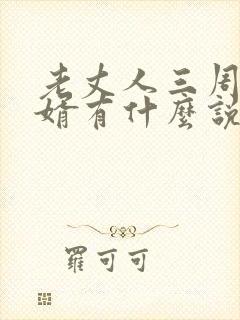 老丈人三周
婿有什麼說
羅可可